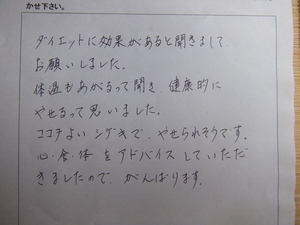 かせ下さい。
ダイエットに効果があると聞きまして、
お願いしました。
体温もあがるって聞き、健康的に
やせるって思いました。
ココチよいシゲキで、やせられそうです。
心・食・体をアドバイスしていただ
きましたので、がんばります。